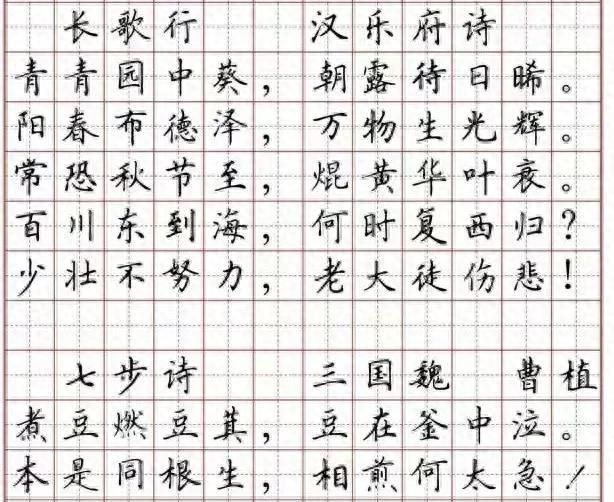 长歌行 汉乐府诗
青青园中葵，朝露待日晞。
阳春布德泽，万物生光辉。
常恐秋节至，焜黄华叶衰。
百川东到海，何时复西归？
少壮不努力，老大徒伤悲！
七步诗 三国魏 曹植
煮豆燃豆萁，豆在釜中泣。
本是同根生，相煎何太急！